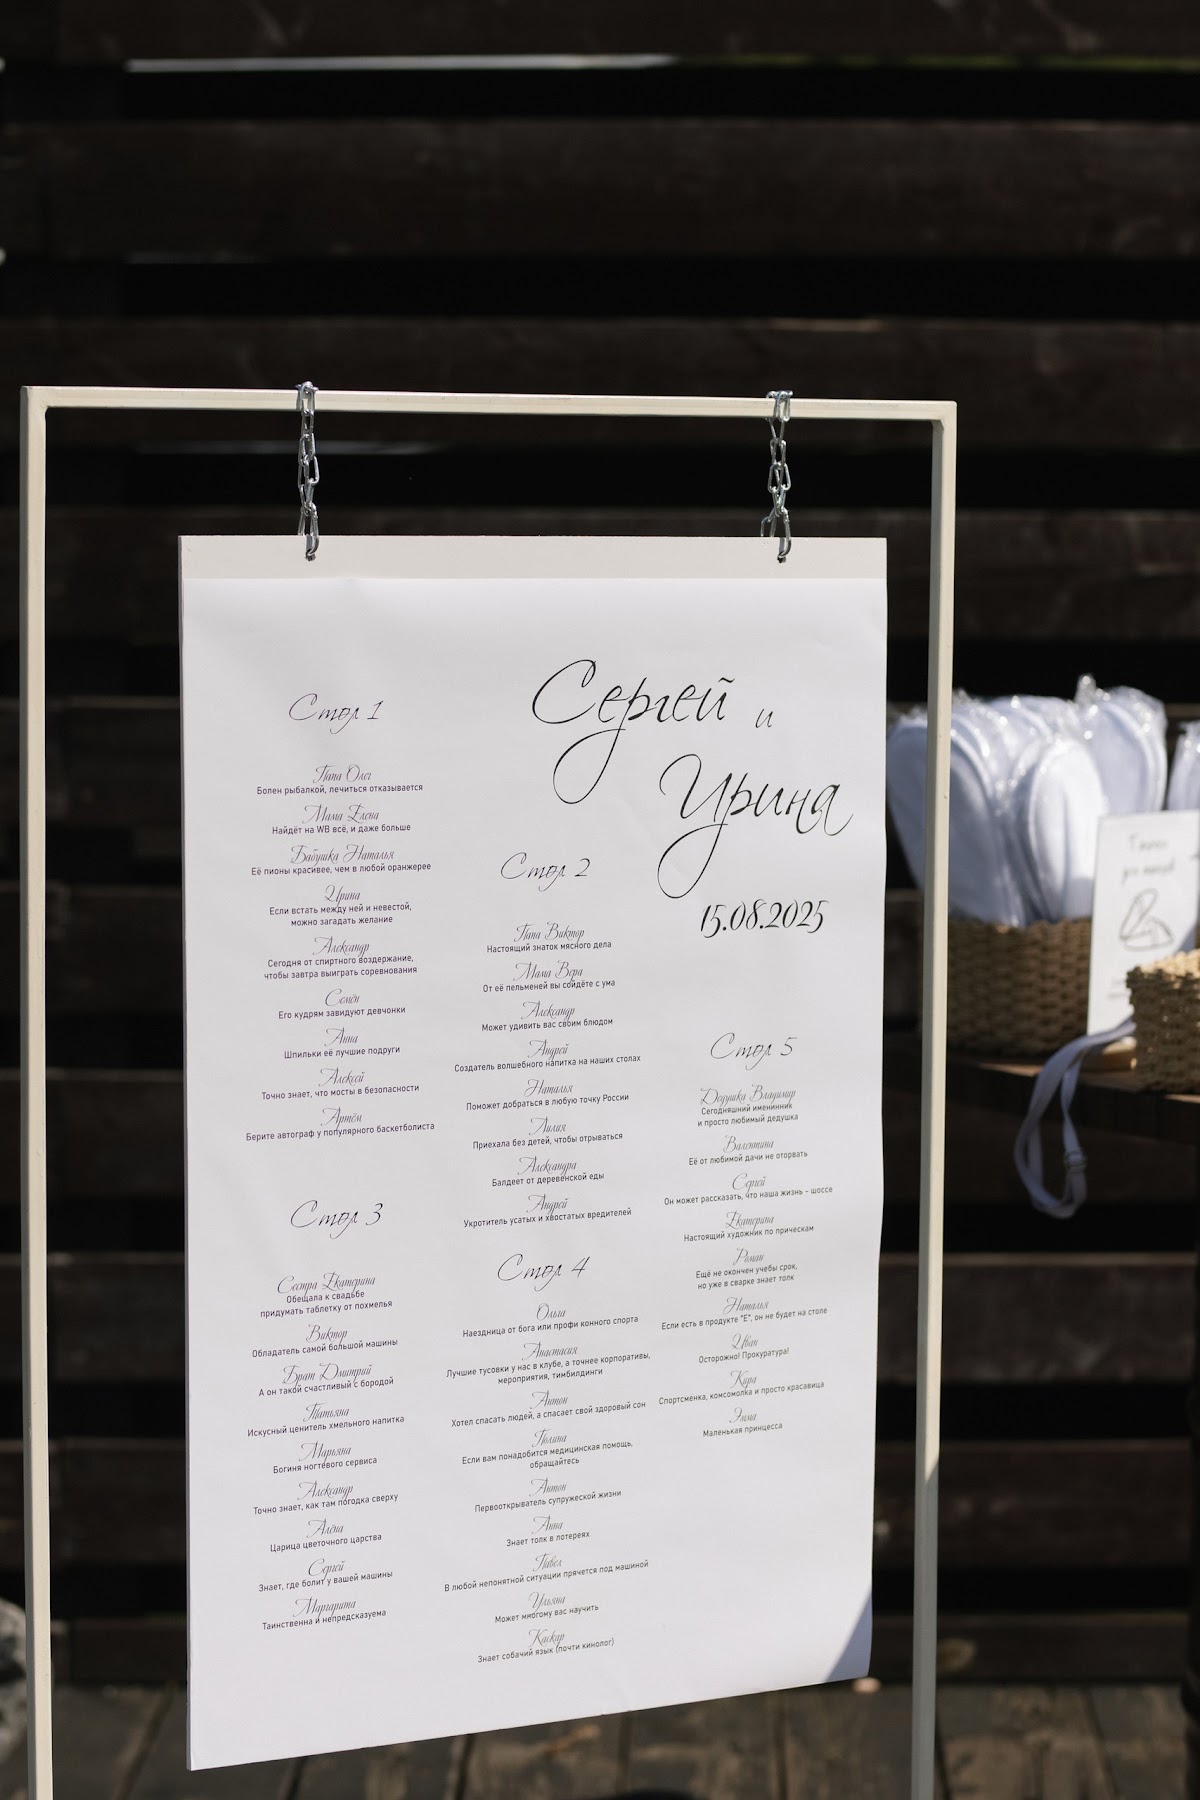 Сергей и
Ирина
15.08.2025
Стол 1
Папа Олег
Болен рыбалкой, лечиться отказывается
Мама Елена
Найдёт на WB всё, и даже больше
Бабушка Наталья
Её пионы красивее, чем в любой оранжерее
Ирина
Если встать между ней и невестой,
можно загадать желание
Александр
Сегодня от спиртного воздержание,
чтобы завтра выиграть соревнования
Семён
Его кудрям завидуют девчонки
Анна
Шпильки её лучшие подруги
Алексей
Точно знает, что мосты в безопасности
Артём
Берите автограф у популярного баскетболиста
Стол 2
Папа Виктор
Настоящий знаток мясного дела
Мама Вера
От её пельменей вы сойдёте с ума
Александр
Может удивить вас своим блюдом
Андрей
Создатель волшебного напитка на наших столах
Наталья
Поможет добраться в любую точку России
Лилия
Приехала без детей, чтобы отрываться
Александра
Балдеет от деревенской еды
Андрей
Укротитель усатых и хвостатых вредителей
Стол 3
Сестра Екатерина
Обещала к свадьбе
придумать таблетку от похмелья
Виктор
Обладатель самой большой машины
Брат Дмитрий
А он такой счастливый с бородой
Татьяна
Искусный ценитель хмельного напитка
Марьяна
Богиня ногтевого сервиса
Александр
Точно знает, как там погодка сверху
Алёна
Царица цветочного царства
Сергей
Знает, где болит у вашей машины
Маргарита
Таинственна и непредсказуема
Стол 4
Ольга
Наездница от бога или профи конного спорта
Анастасия
Лучшие тусовки у нас в клубе, а точнее корпоративы,
мероприятия, тимбилдинги
Антон
Хотел спасать людей, а спасает свой здоровый сон
Полина
Если вам понадобится медицинская помощь,
обращайтесь
Антон
Первооткрыватель супружеской жизни
Анна
Знает толк в лотереях
Павел
В любой непонятной ситуации прячется под машиной
Ульяна
Может многому вас научить
Каскар
Знает собачий язык (почти кинолог)
Стол 5
Дедушка Владимир
Сегодняшний именинник
и просто любимый дедушка
Валентина
Её от любимой дачи не оторвать
Сергей
Он может рассказать, что наша жизнь – шоссе
Екатерина
Настоящий художник по прическам
Роман
Ещё не окончен учебы срок,
но уже в сварке знает толк
Наталья
Если есть в продукте "Е", он не будет на столе
Иван
Осторожно! Прокуратура!
Кира
Спортсменка, комсомолка и просто красавица
Эмма
Маленькая принцесса